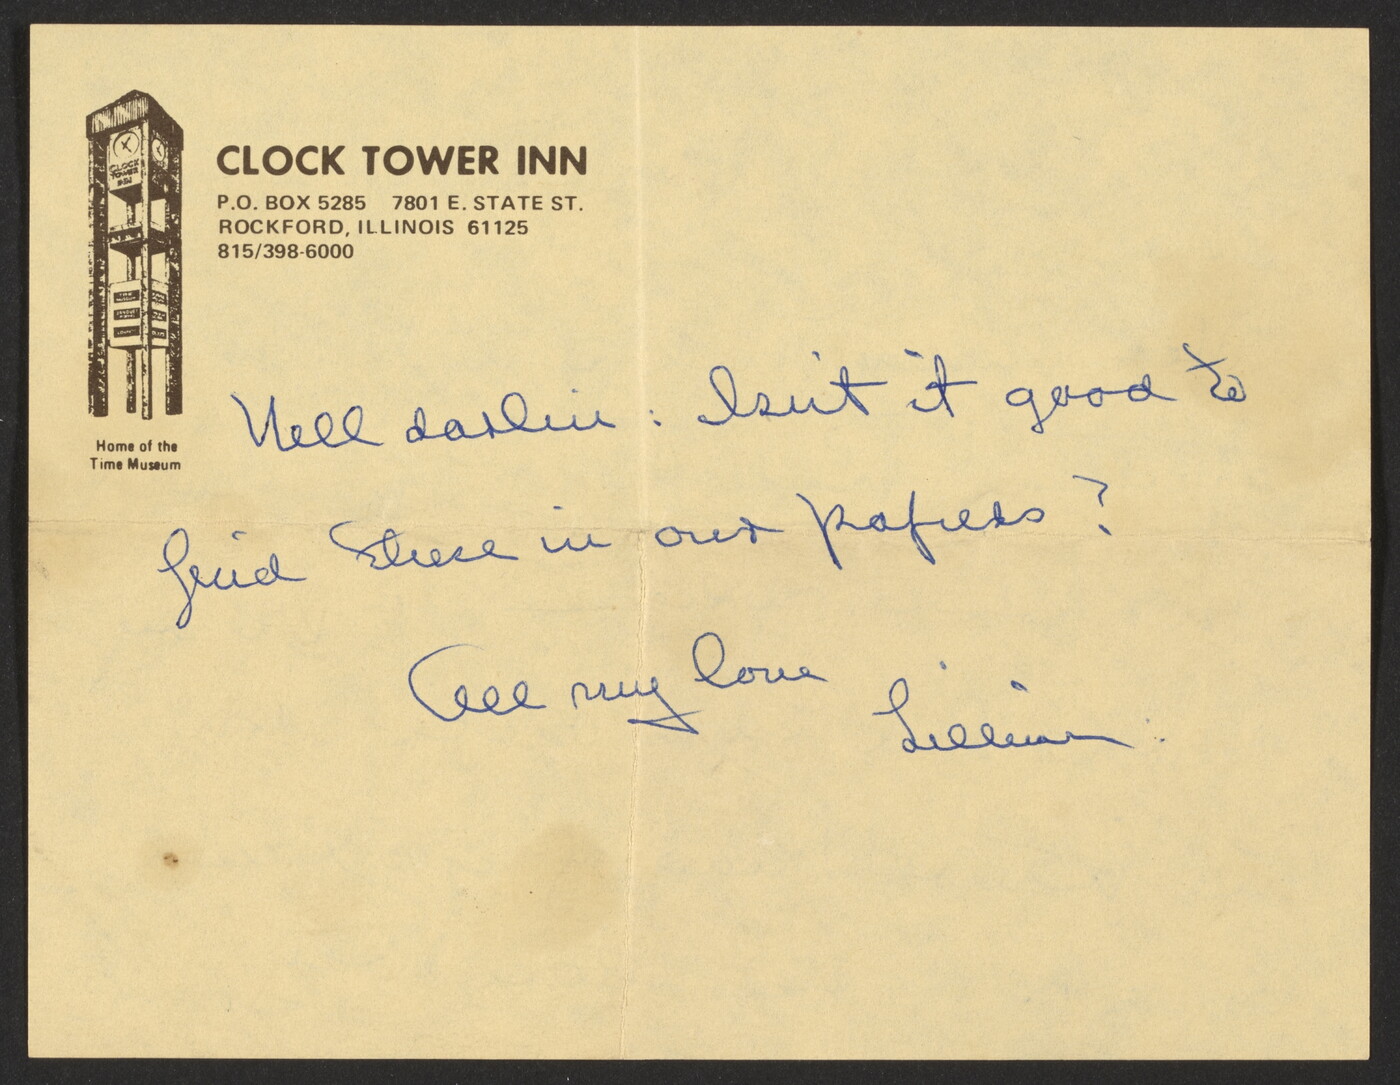 CLOCK TOWER INN
P.O. BOX 5285 7801 E. STATE ST.
ROCKFORD, ILLINOIS 61125
815/398-6000
CLOCK
TOWER
INN
Home of the
Time Museum
Nell darlin: Isn't it good to
find these in our papers?
All my love
Lillian